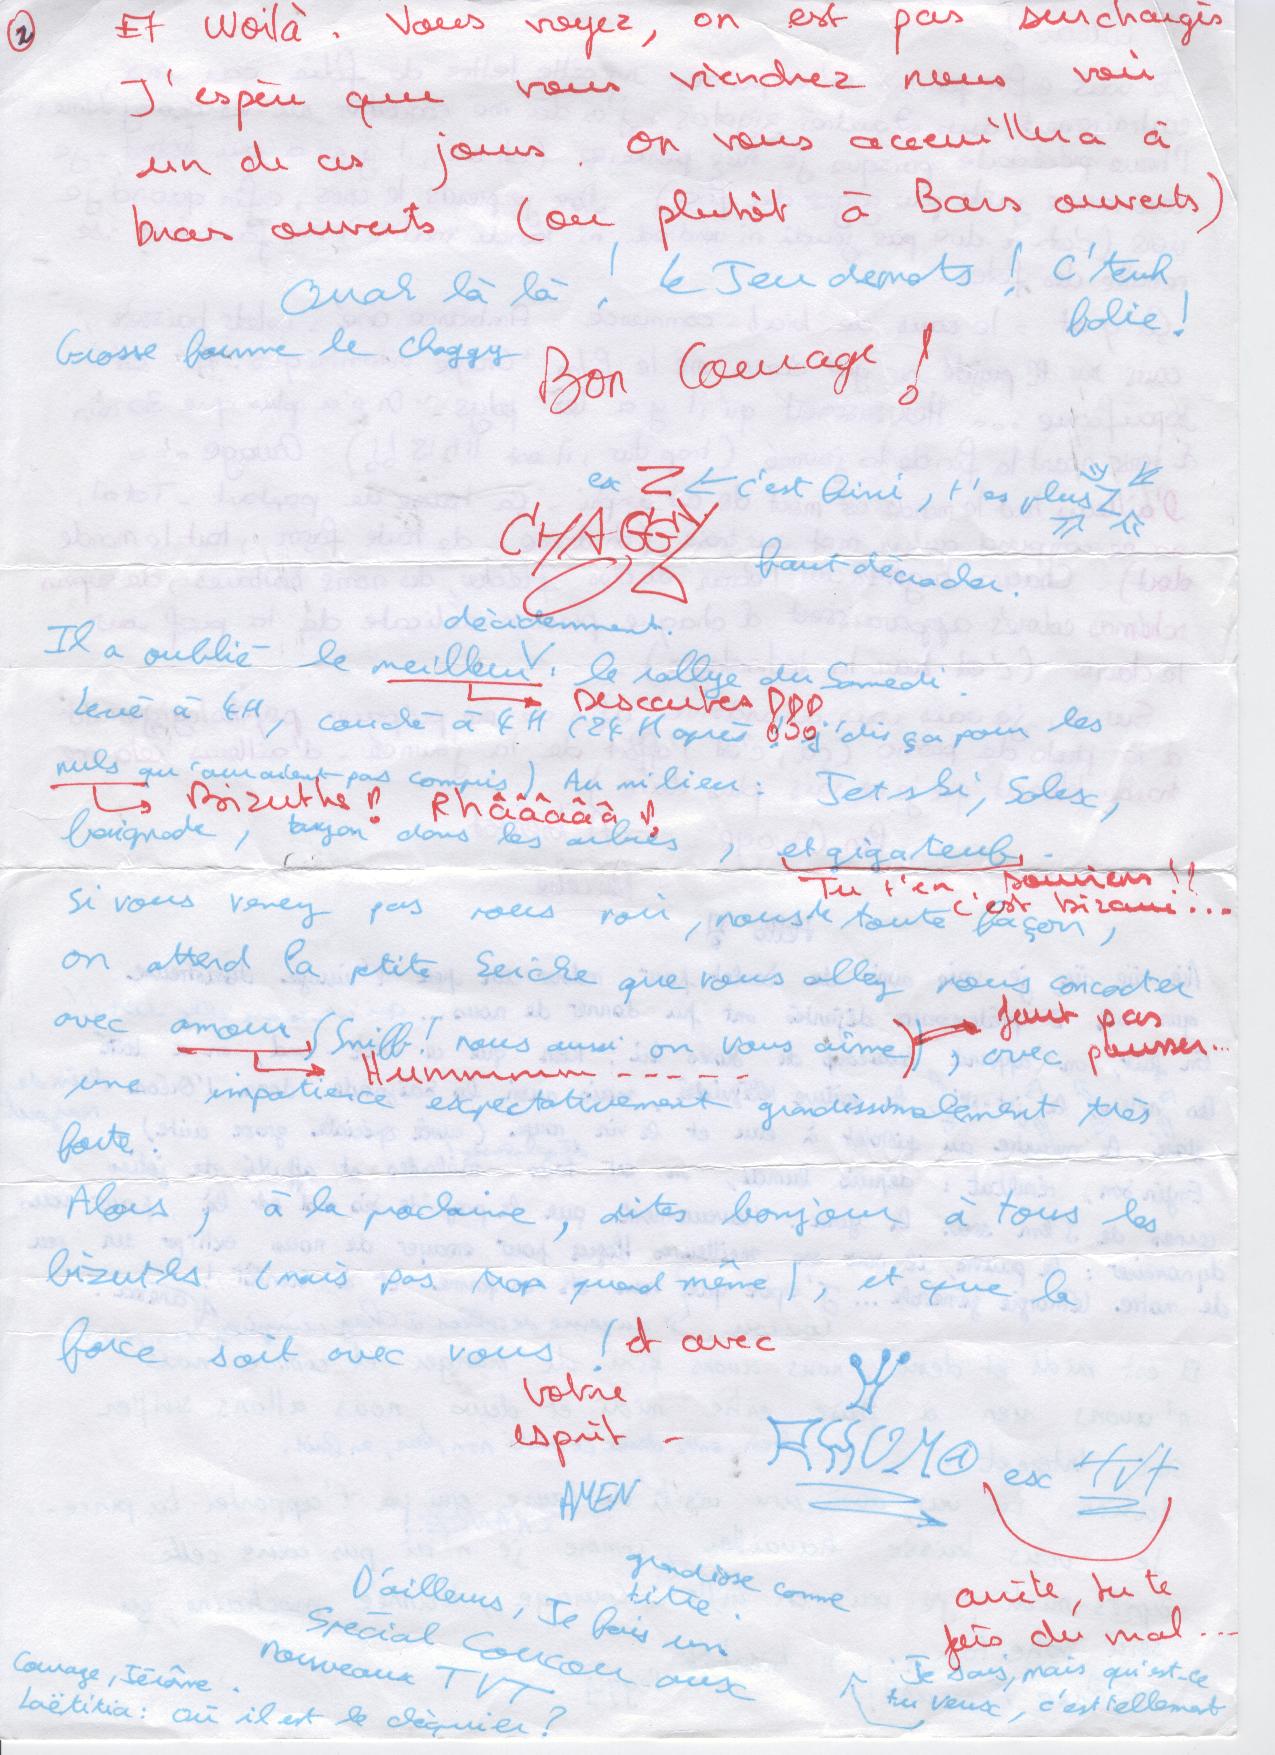 2 Et Woilà. Vous voyez, on est pas surchargés
J'espère que vous viendrez nous voir
un de ces jours. On vous accueillera à
bras ouverts (ou plutôt à Bars ouverts)
Ouah là là ! Le Jeu de mots ! C'teuh
folie !
Grosse forme le Chaggy
Bon Courage !
ex Z ← c'est fini, t'es plus Z
CHAGGY
faut décrader.
décidemment.
Il a oublié le meilleur V. le rallye du Samedi.
→ Descartes !!!
Levé à 4H, couché à 4H (24H après !! j'dis ça pour les
nuls qu'auraient pas compris) Au milieu : Jetski, Solex,
→ Bizuths ! Rhâââââ !
baignade, dans les arbres, et gigateuf.
Tu t'en souviens !!
c'est bizarre...
Si vous venez pas nous voir, nous toute façon,
on attend la ptite Seiche que vous allez nous concocter
avec amour (Sniff ! nous aussi on vous aime), avec
→ faut pas
pousser...
→ Hummmm ------
une impatience expectativement grandissimalement très
forte.
Alors, à la prochaine, dites bonjour à tous les
bizuths (mais pas trop quand même), et que la
force soit avec vous ! et avec
votre
esprit -
AMEN
esc TVT
arrête, tu te
fais du mal...
Je sais, mais qu'est-ce
tu veux, c'est tellement
grandiose comme
titre.
D'ailleurs, Je fais un
Spécial Coucou aux
nouveaux TVT
Courage, Jérôme.
Laëtitia : où il est le chéquier ?